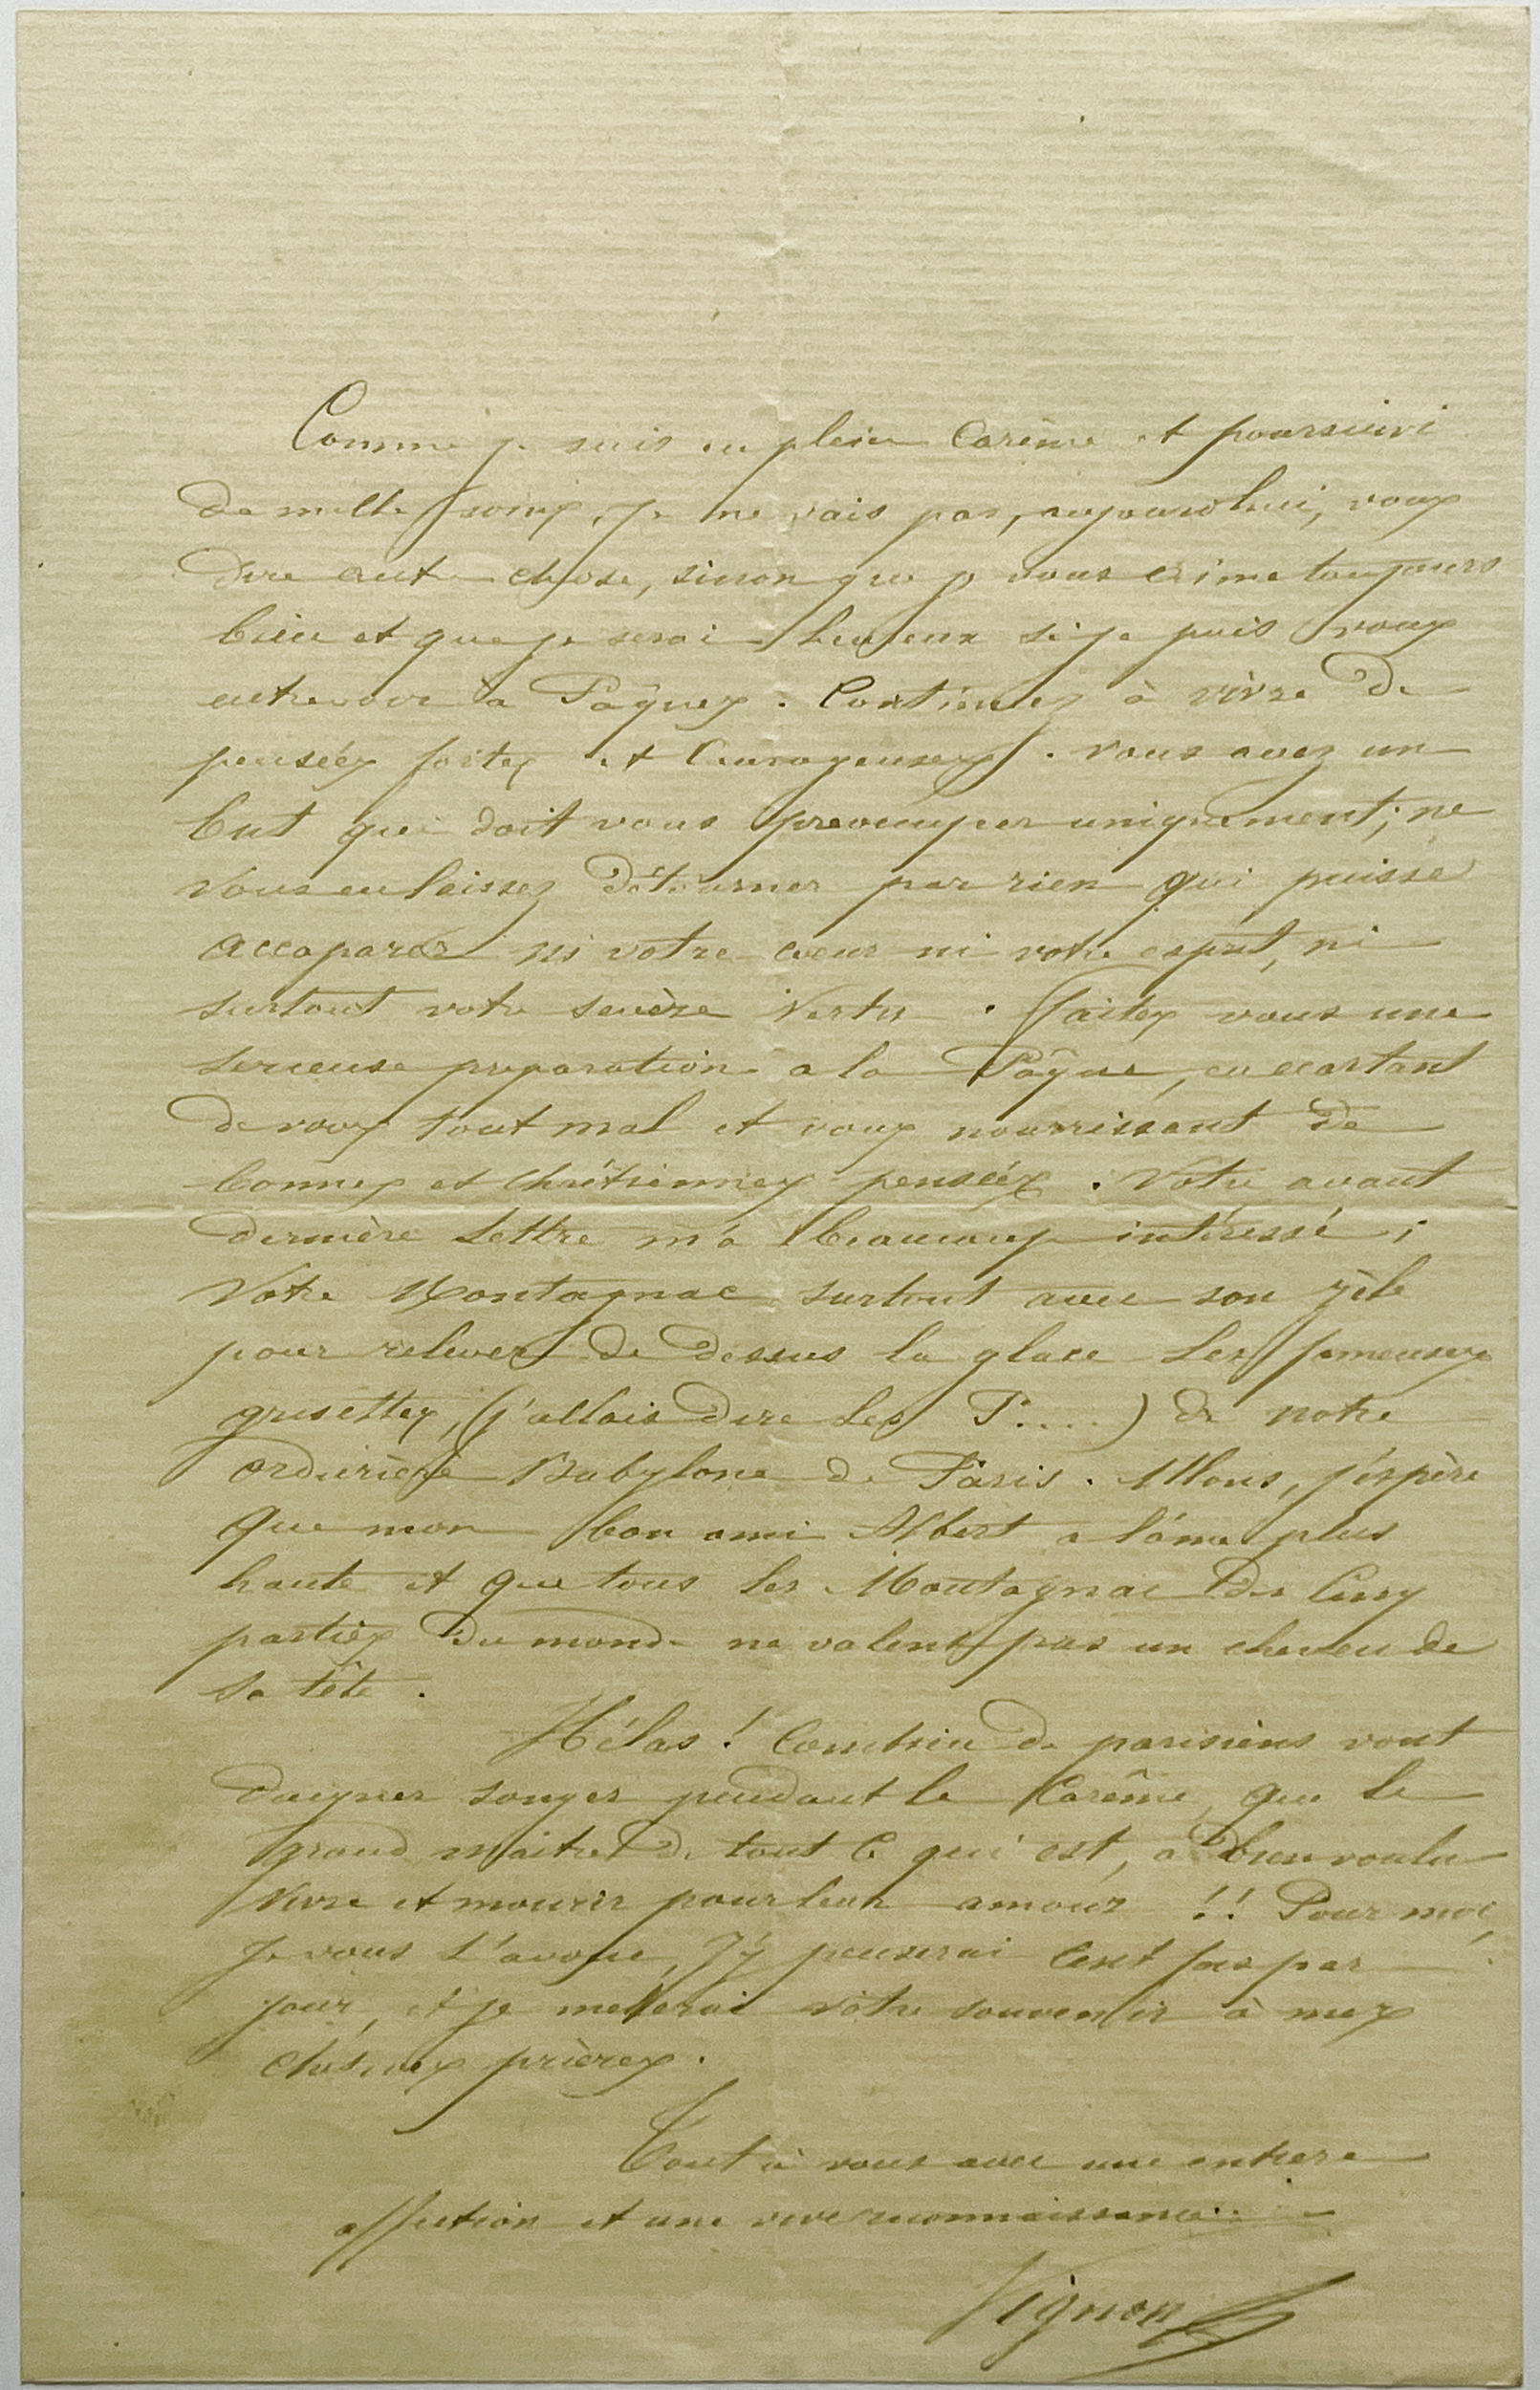 Comme je suis en plein Carême et poursuivi
de mille soins, je ne vais pas, aujourd'hui, vous
dire autre chose, sinon que je vous aime toujours
bien et que je serai heureux si je puis vous
entrevoir à Pâques. Continuez à vivre de
pensées fortes et Courageuses. Vous avez un
but qui doit vous préoccuper uniquement; ne
vous en laissez détourner par rien qui puisse
accaparer ni votre cœur ni votre esprit, ni
surtout votre sevère Vertu. Faites vous une
serieuse preparation a la Pâque, en ecartant
de vous tout mal et vous nourrissant de
bonnes et chrétiennes pensées. Votre avant
dernière lettre m'a beaucoup intéressé;
Votre Montagnac surtout avec son zèle
pour relever de dessus la glace les fameuses
grisettes, (j'allais dire les P....) de notre
ordurière Babylone de Paris. Allons, j'espère
que mon bon ami Albert a l'âme plus
haute et que tous les Montagnac des cinq
parties du monde ne valent pas un cheveu de
sa tête.
Hélas! Combien de parisiens vont
daigner songer pendant le Carême, que le
grand maitre de tout ce qui est, a bien voulu
vivre et mourir pour leur amour!! Pour moi,
Je vous l'avoue, J'y penserai cent fois par
jour, et je mêlerai votre souvenir à mes
chétives prières.
Tout à vous avec une entiere
affection et une vive reconnaissance.
Vignon